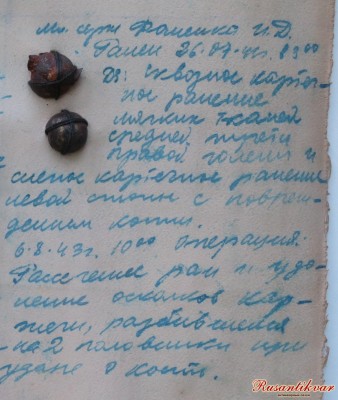 Мл. серж Фоменко И.Д.
Ранен 26.07.43г. 8 30
Ds: Сквозное картеч-
ное ранение
мягких тканей
средней трети
правой голени и
слепое картечное ранение
левой стопы с повреж-
дением кости.
6.8.43г. 10 00 операция.
Рассечение ран и уда-
ление осколков кар-
течи, разбившейся
на 2 половинки при
ударе о кость.
Rusantikvar